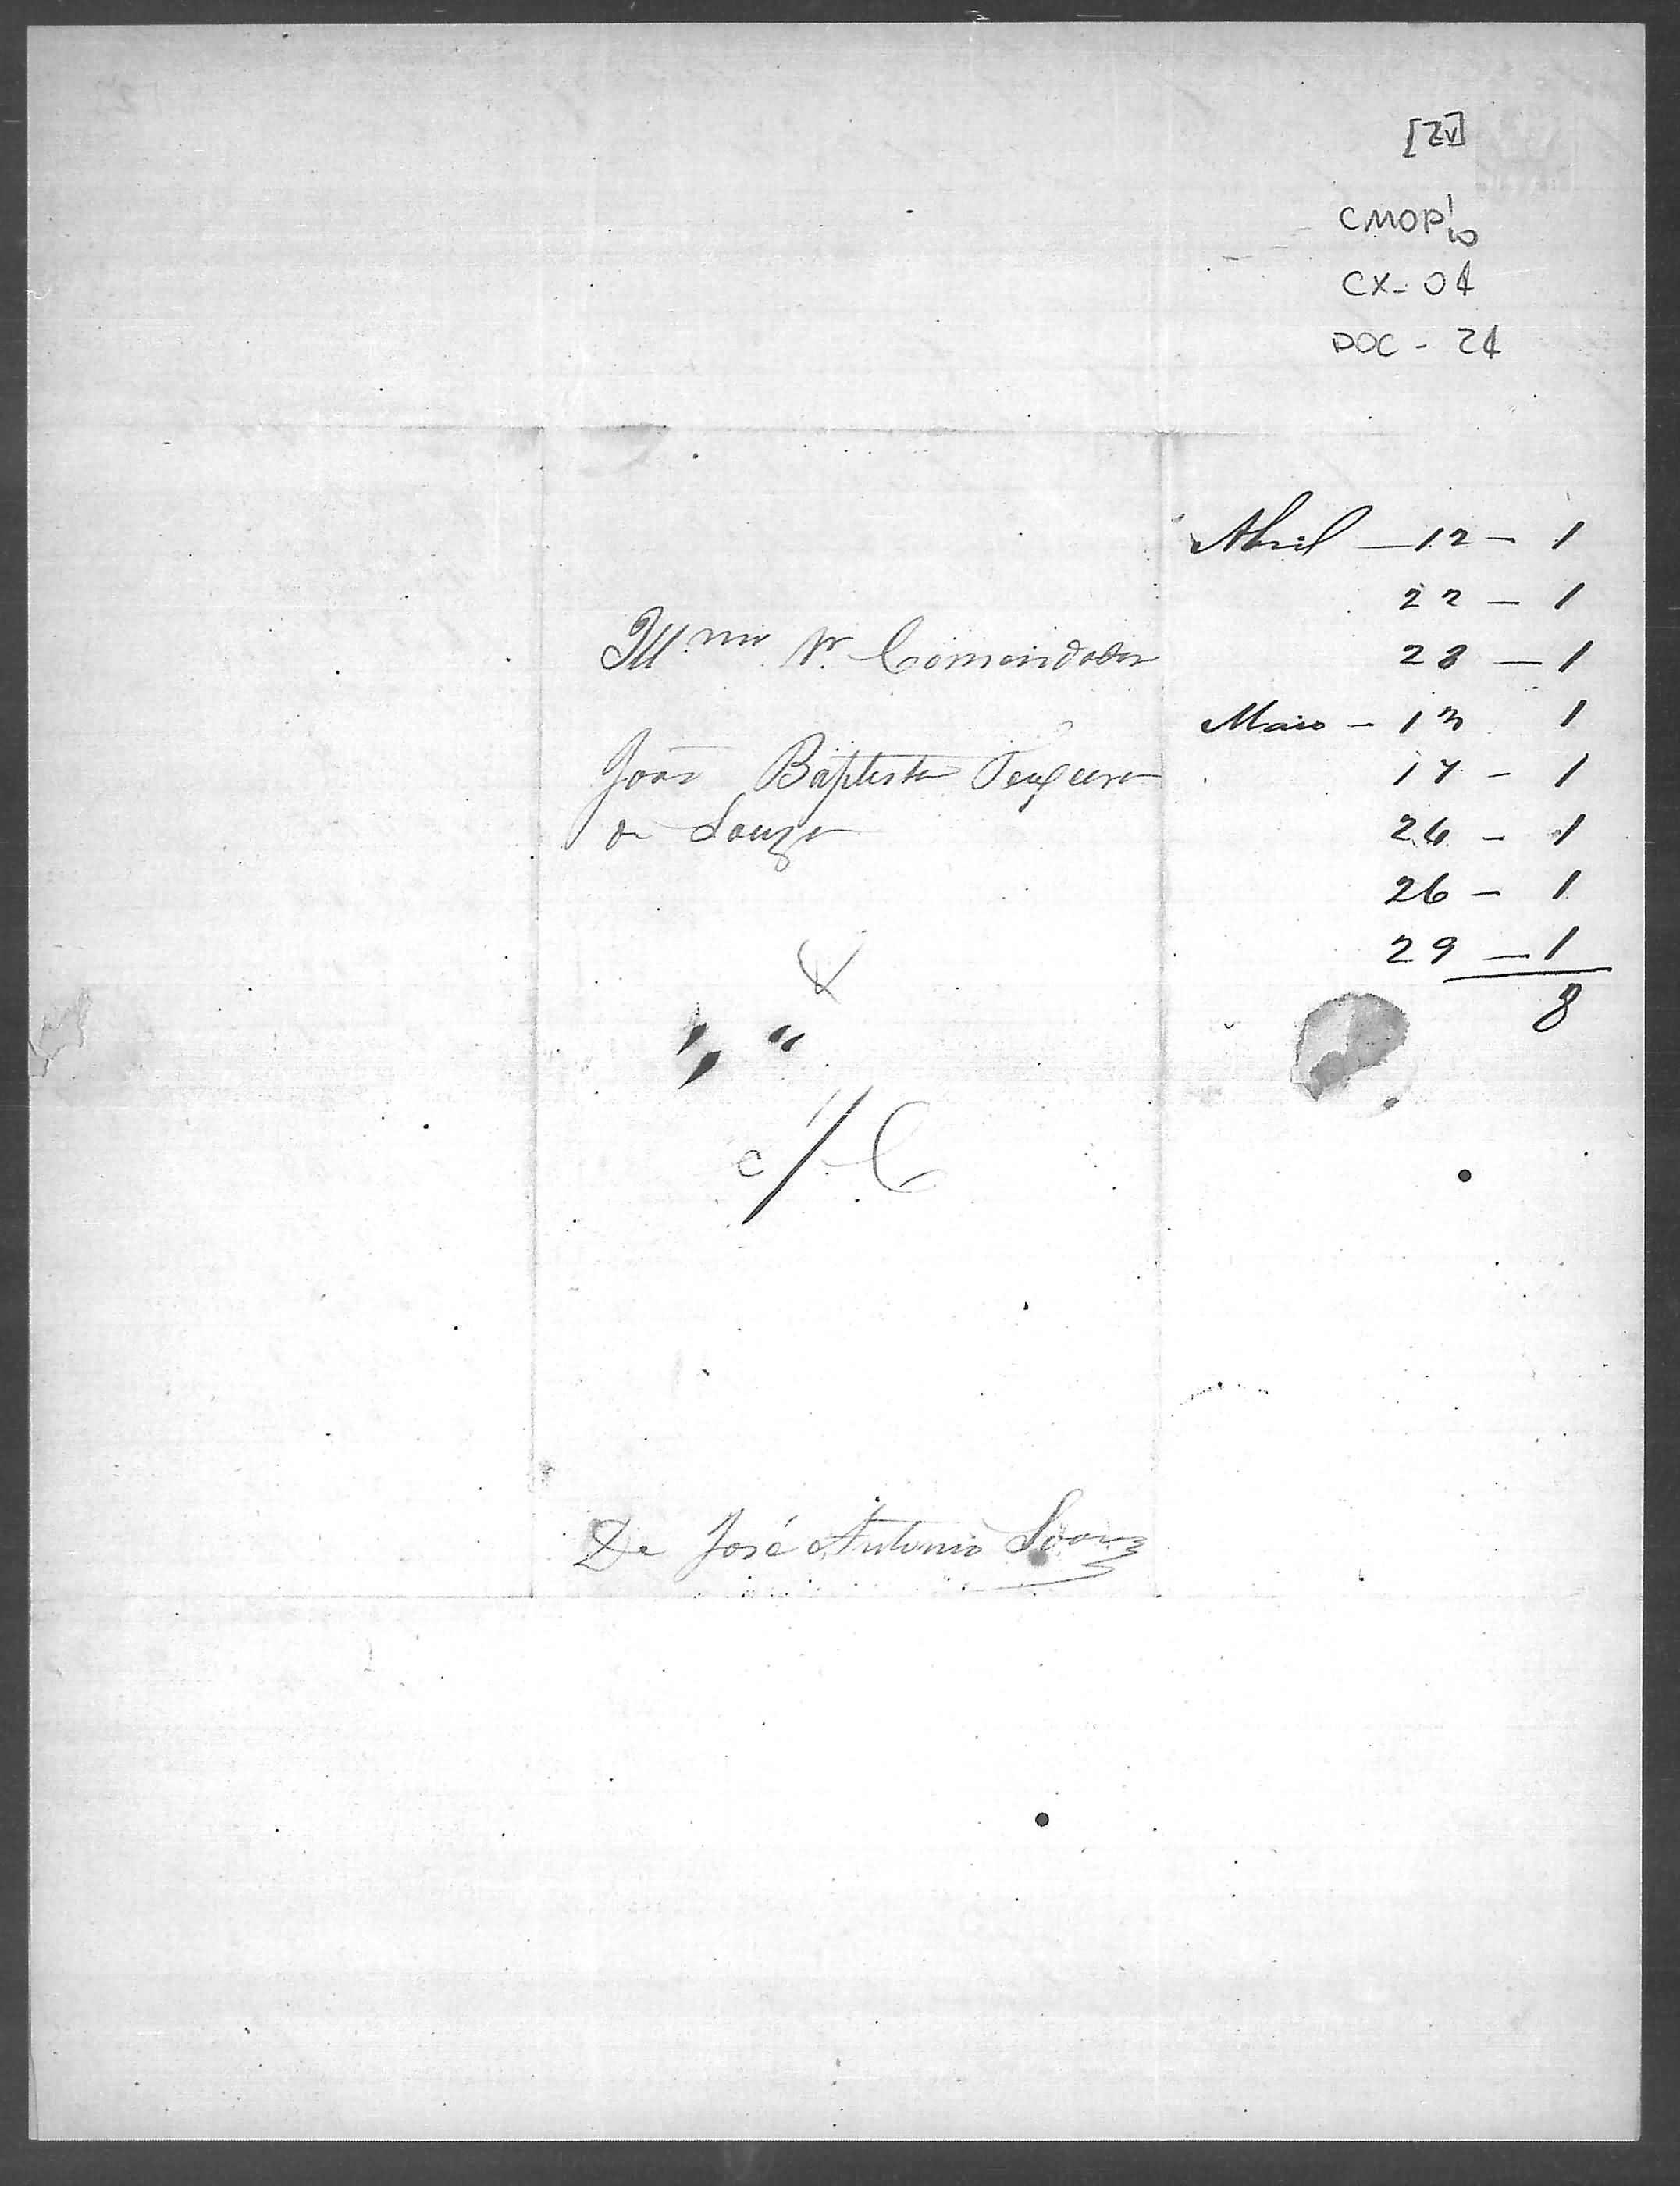 [2v]
CMOP
CX- 04
DOC - 24
Abril - 12 - 1
22 - 1
28 - 1
Maio - 13 1
17 - 1
26 - 1
26 - 1
29 - 1
8
Illmo Sr. Comendador
João Baptista Teixeira
de Souza
c/ C
De José Antonio Soares